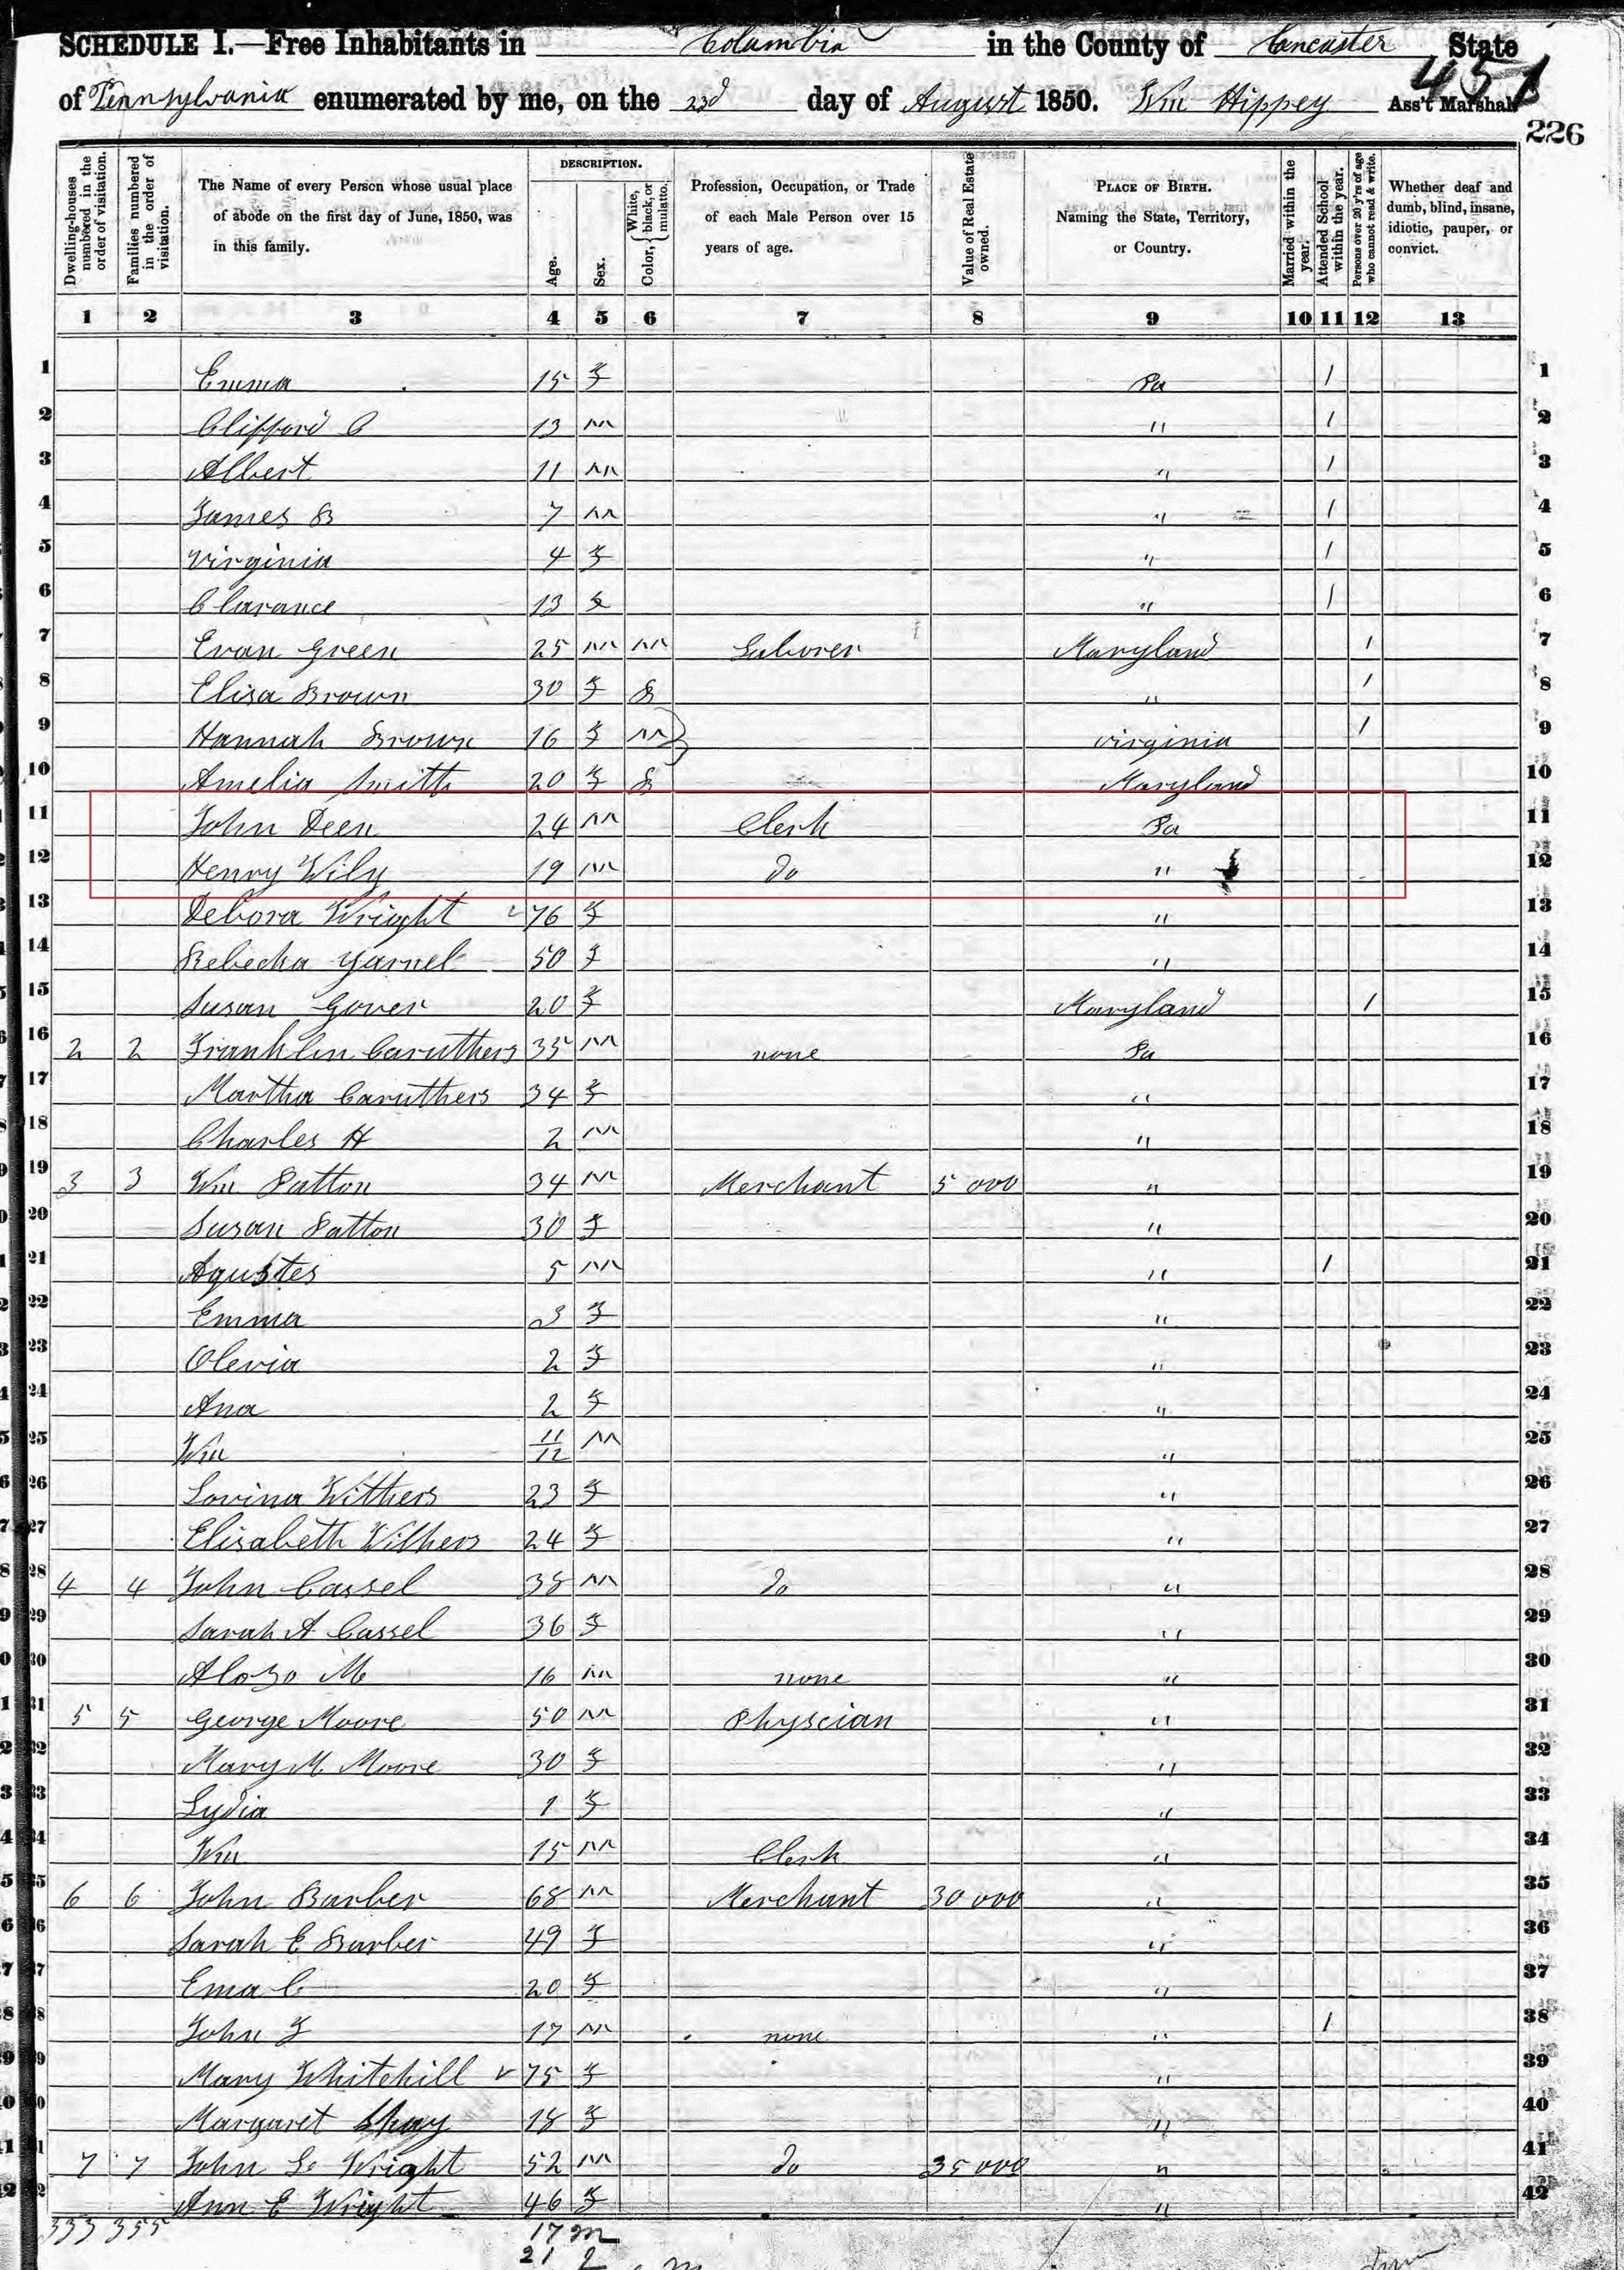 SCHEDULE I.—Free Inhabitants in Columbia in the County of Lancaster State
451
of Pennsylvania enumerated by me, on the 23d day of August 1850. Wm Hippey Ass't Marshal
226
Dwelling-houses numbered in the order of visitation.
Families numbered in the order of visitation.
The Name of every Person whose usual place of abode on the first day of June, 1850, was in this family.
DESCRIPTION.
Age.
Sex.
Color, { White, black, or mulatto.
Profession, Occupation, or Trade of each Male Person over 15 years of age.
Value of Real Estate owned.
PLACE OF BIRTH. Naming the State, Territory, or Country.
Married within the year.
Attended School within the year.
Persons over 20 y'rs of age who cannot read & write.
Whether deaf and dumb, blind, insane, idiotic, pauper, or convict.
1 2 3 4 5 6 7 8 9 10 11 12 13
1 Emma 15 F Pa 1 1
2 Clifford C 13 M " 1 2
3 Albert 11 M " 1 3
4 James B 7 M " 1 4
5 Virginia 4 F " 1 5
6 Clarance 13 " 1 6
7 Evan Green 25 M M Laborer Maryland 1 7
8 Elisa Brown 30 F B " 1 8
9 Hannah Brown 16 F M Virginia 1 9
10 Amelia Smith 20 F B Maryland 10
11 John Deen 24 M Clerk Pa 11
12 Henry Wily 19 M do " 12
13 Debora Wright 76 F " 13
14 Rebecka Yarnel 50 F " 14
15 Susan Gover 20 F Maryland 1 15
16 2 2 Franklin Caruthers 35 M none Pa 16
17 Martha Caruthers 34 F " 17
18 Charles H 2 M " 18
19 3 3 Wm Patton 34 M Merchant 5 000 " 19
20 Susan Patton 30 F " 20
21 Agustes 5 M " 1 21
22 Emma 3 F " 22
23 Olevia 2 F " 23
24 Ana 2 F " 24
25 Wm 11/12 M " 25
26 Lovina Withers 23 F " 26
27 Elisabeth Withers 24 F " 27
28 4 4 John Cassel 38 M do " 28
29 Sarah A Cassel 36 F " 29
30 Alozo M 16 M none " 30
31 5 5 George Moore 50 M Physcian " 31
32 Mary M Moore 30 F " 32
33 Lydia 1 F " 33
34 Wm 15 M Clerk " 34
35 6 6 John Barber 68 M Merchant 30 000 " 35
36 Sarah E Barber 49 F " 36
37 Ema C 20 F " 37
38 John F 17 M none " 1 38
39 Mary Whitehill 75 F " 39
40 Margaret 18 F " 40
41 7 7 John L Wright 52 M do 35 000 " 41
42 Ann E Wright 46 F " 42
333 355 17 m
21